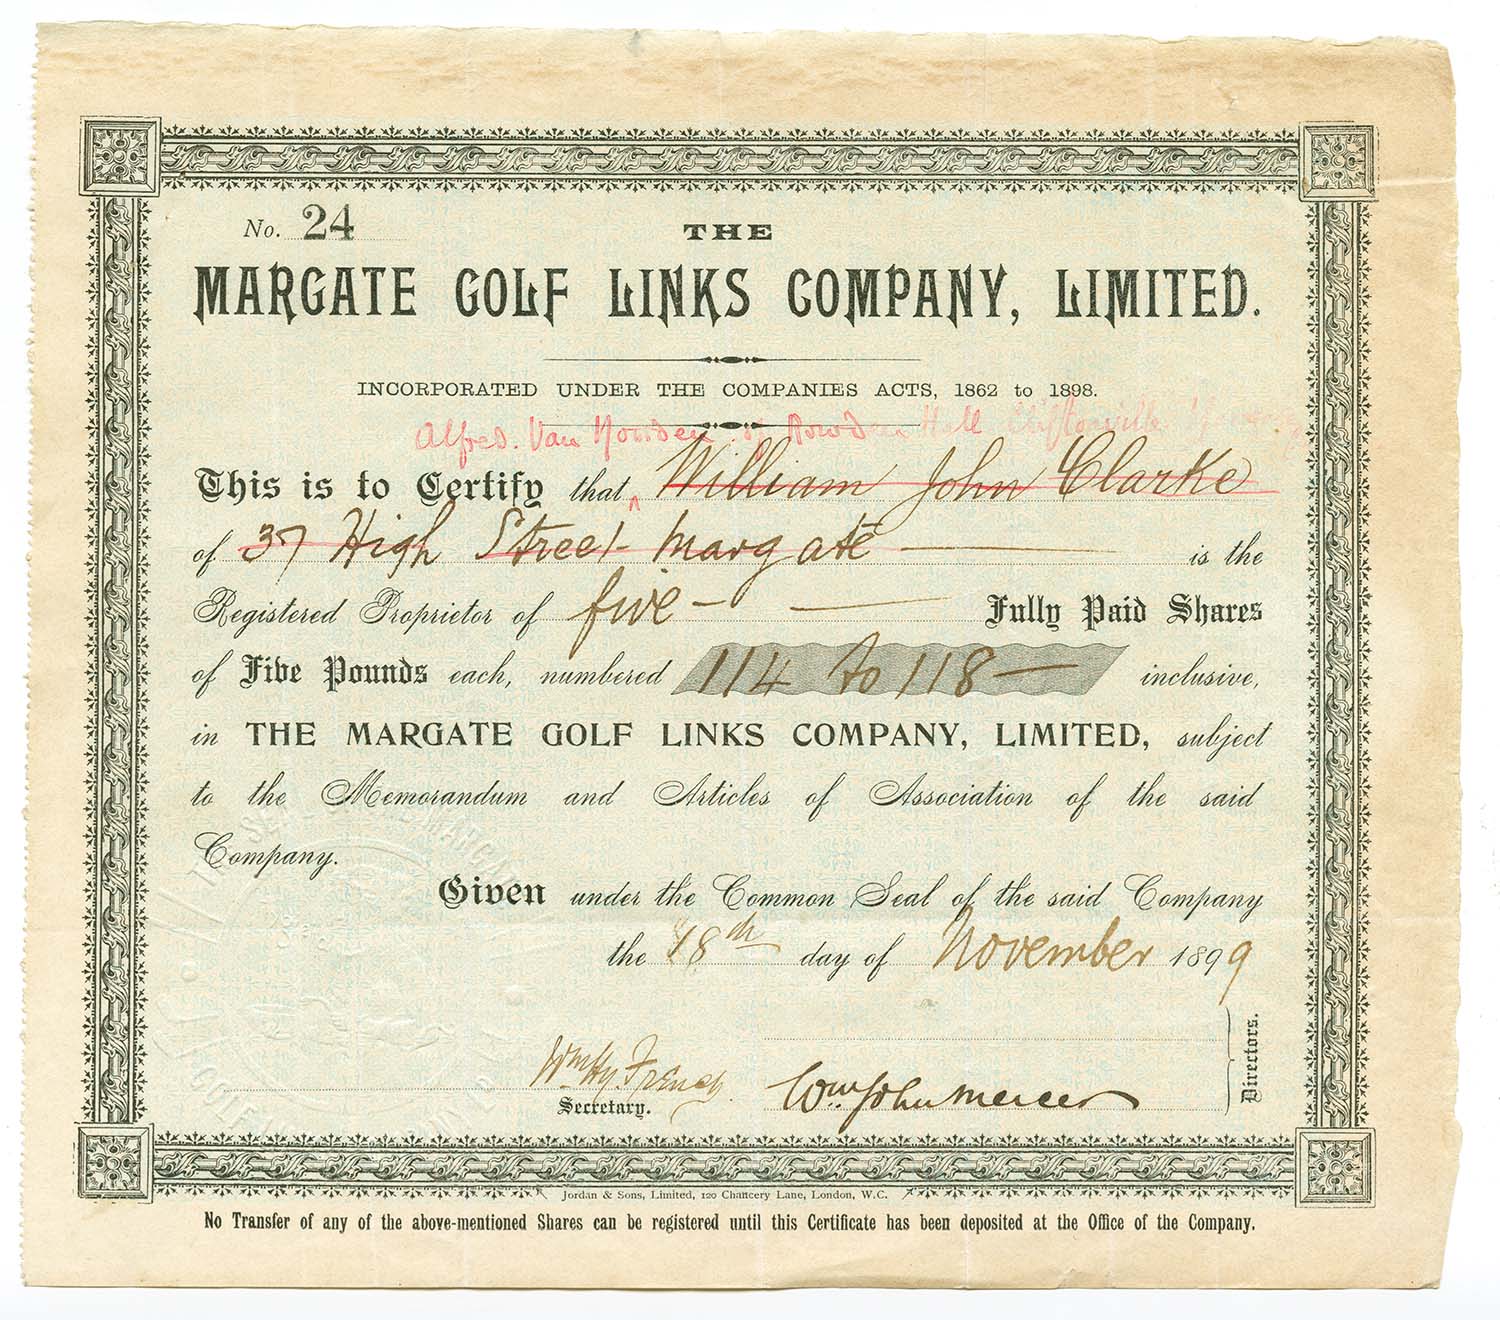 No. 24
THE
MARGATE GOLF LINKS COMPANY, LIMITED.
INCORPORATED UNDER THE COMPANIES ACTS, 1862 to 1898.
Alfred Van Nooden of Rowden Hall Cliftonville
This is to Certify that William John Clarke
of 37 High Street Margate is the
Registered Proprietor of five Fully Paid Shares
of Five Pounds each, numbered 114 to 118 inclusive,
in THE MARGATE GOLF LINKS COMPANY, LIMITED, subject
to the Memorandum and Articles of Association of the said
Company.
Given under the Common Seal of the said Company
the 18th day of November 1899
Wm Hy. French
Secretary.
Wm John Mercer
Directors.
Jordan & Sons, Limited, 120 Chancery Lane, London, W.C.
No Transfer of any of the above-mentioned Shares can be registered until this Certificate has been deposited at the Office of the Company.